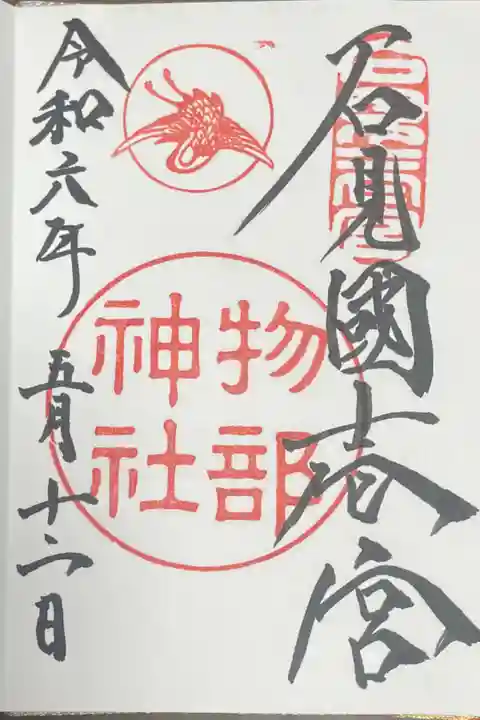 石見國壱宮
物部
神社
令和六年
五月十二日